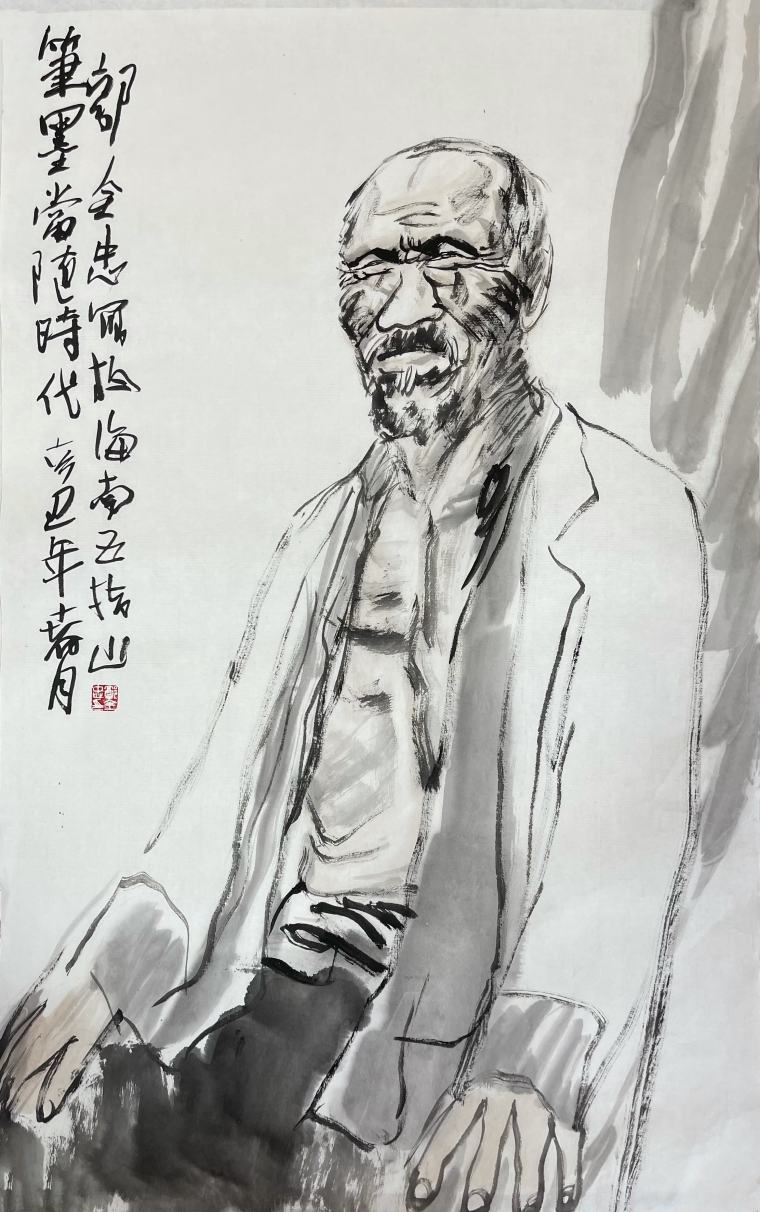 筆墨當隨時代 辛丑年春月
郭全忠寫於海南五指山